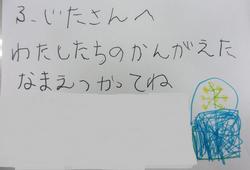 ふじたさんへ
わたしたちのかんがえた
なまえつかってね